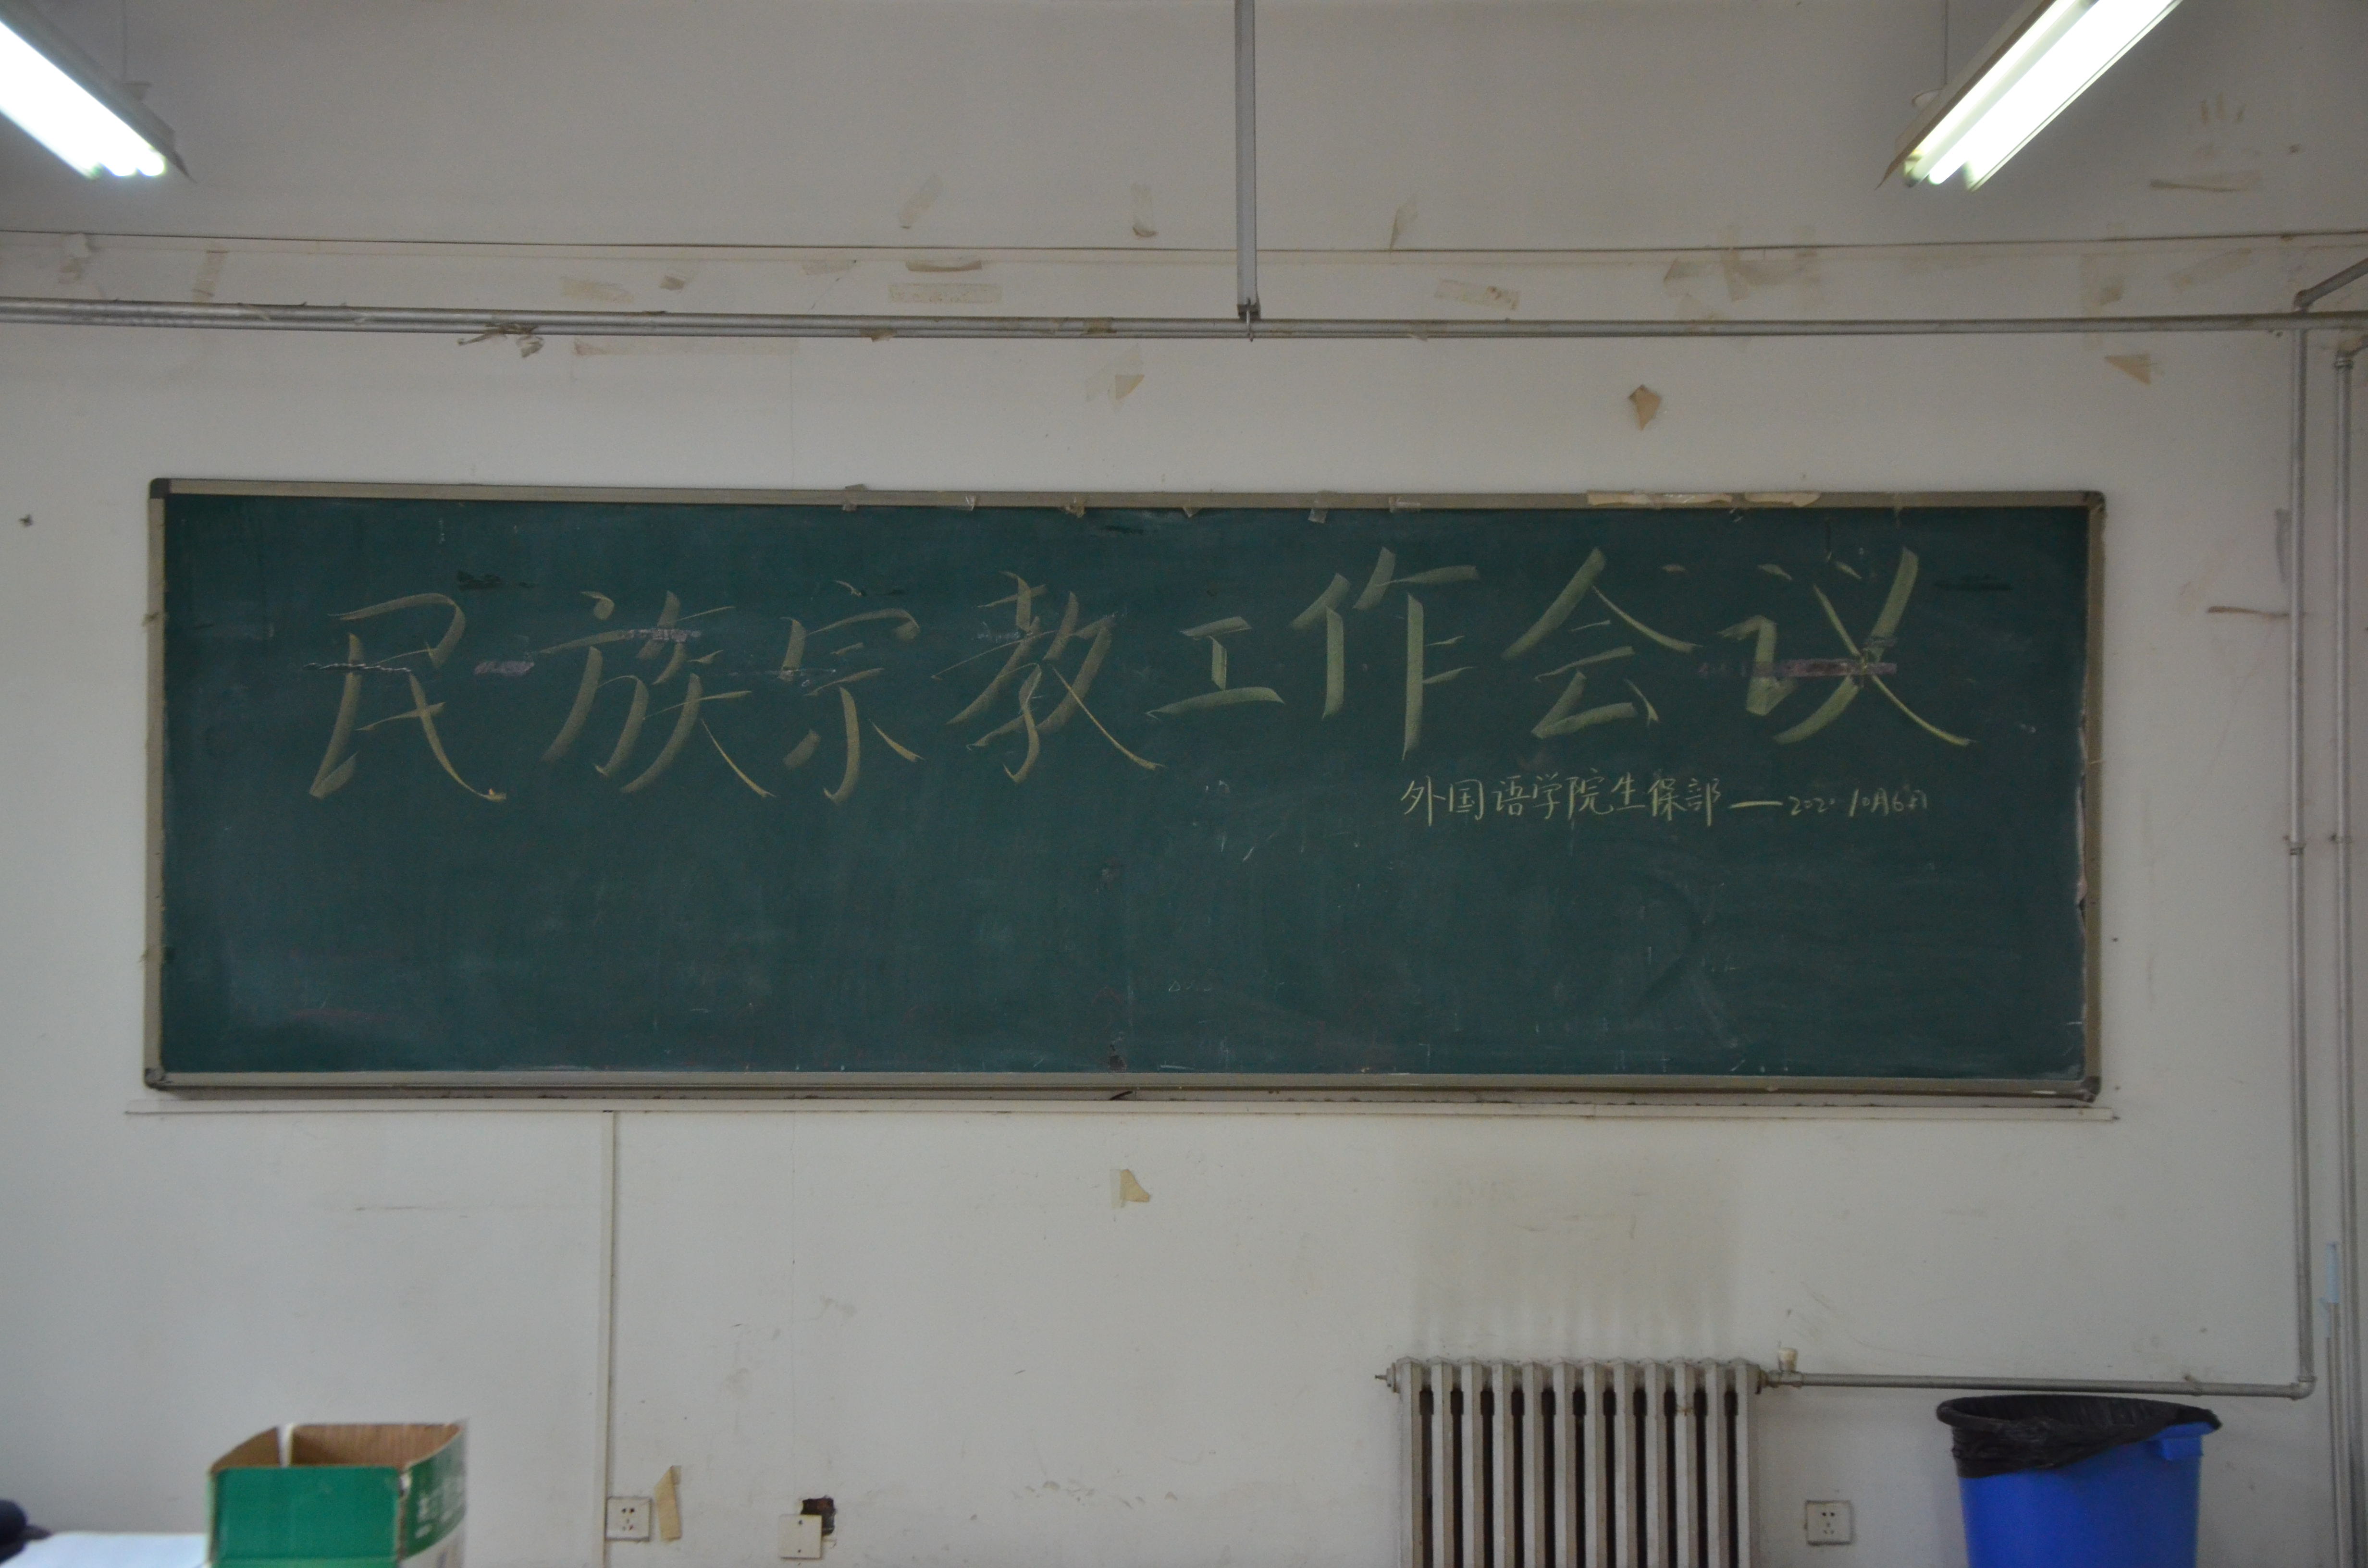 民族宗教工作会议
外国语学院生保部——2020 10月6日